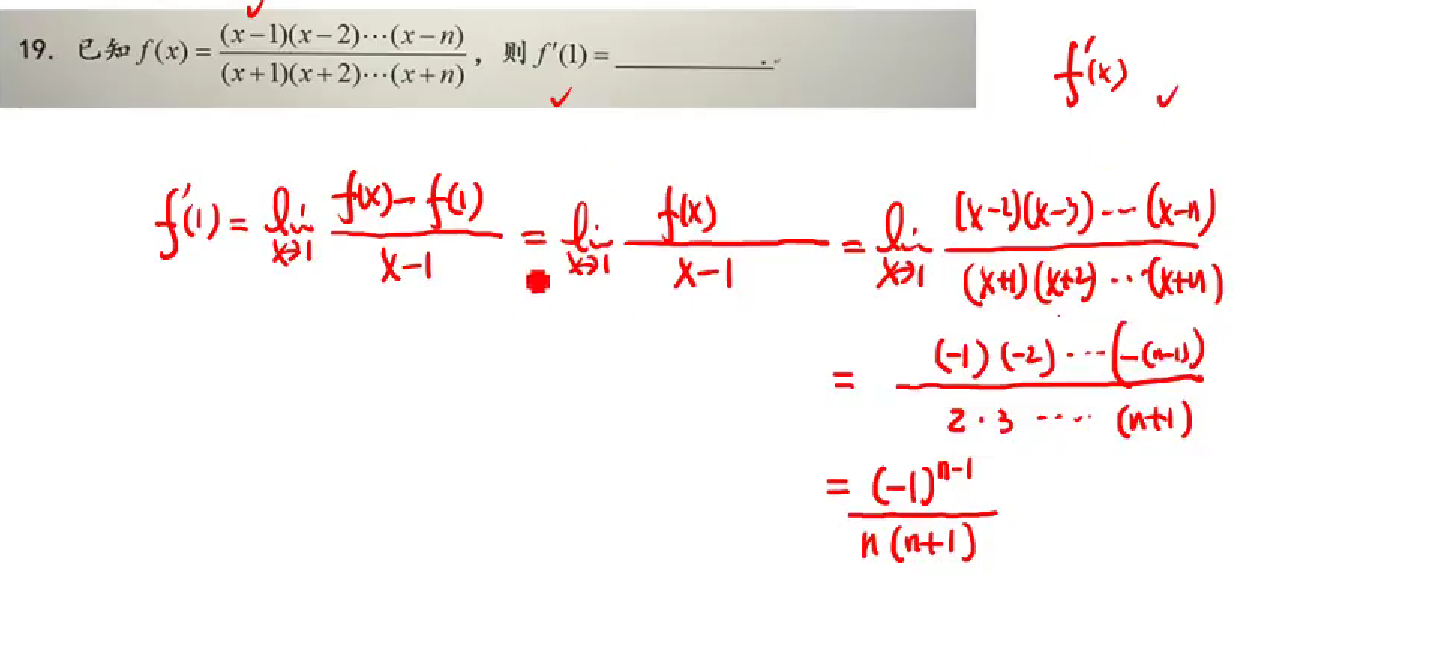 19. 已知 f(x) = \frac{(x-1)(x-2)\cdots(x-n)}{(x+1)(x+2)\cdots(x+n)}, 则 f'(1) = ____________.
f'(x) ✓
f'(1) = \lim_{x→1} \frac{f(x)-f(1)}{x-1} = \lim_{x→1} \frac{f(x)}{x-1} = \lim_{x→1} \frac{(x-2)(x-3)\cdots(x-n)}{(x+1)(x+2)\cdots(x+n)}
= \frac{(-1)(-2)\cdots(-(n-1))}{2·3 \cdots (n+1)}
= \frac{(-1)^{n-1}}{n(n+1)}